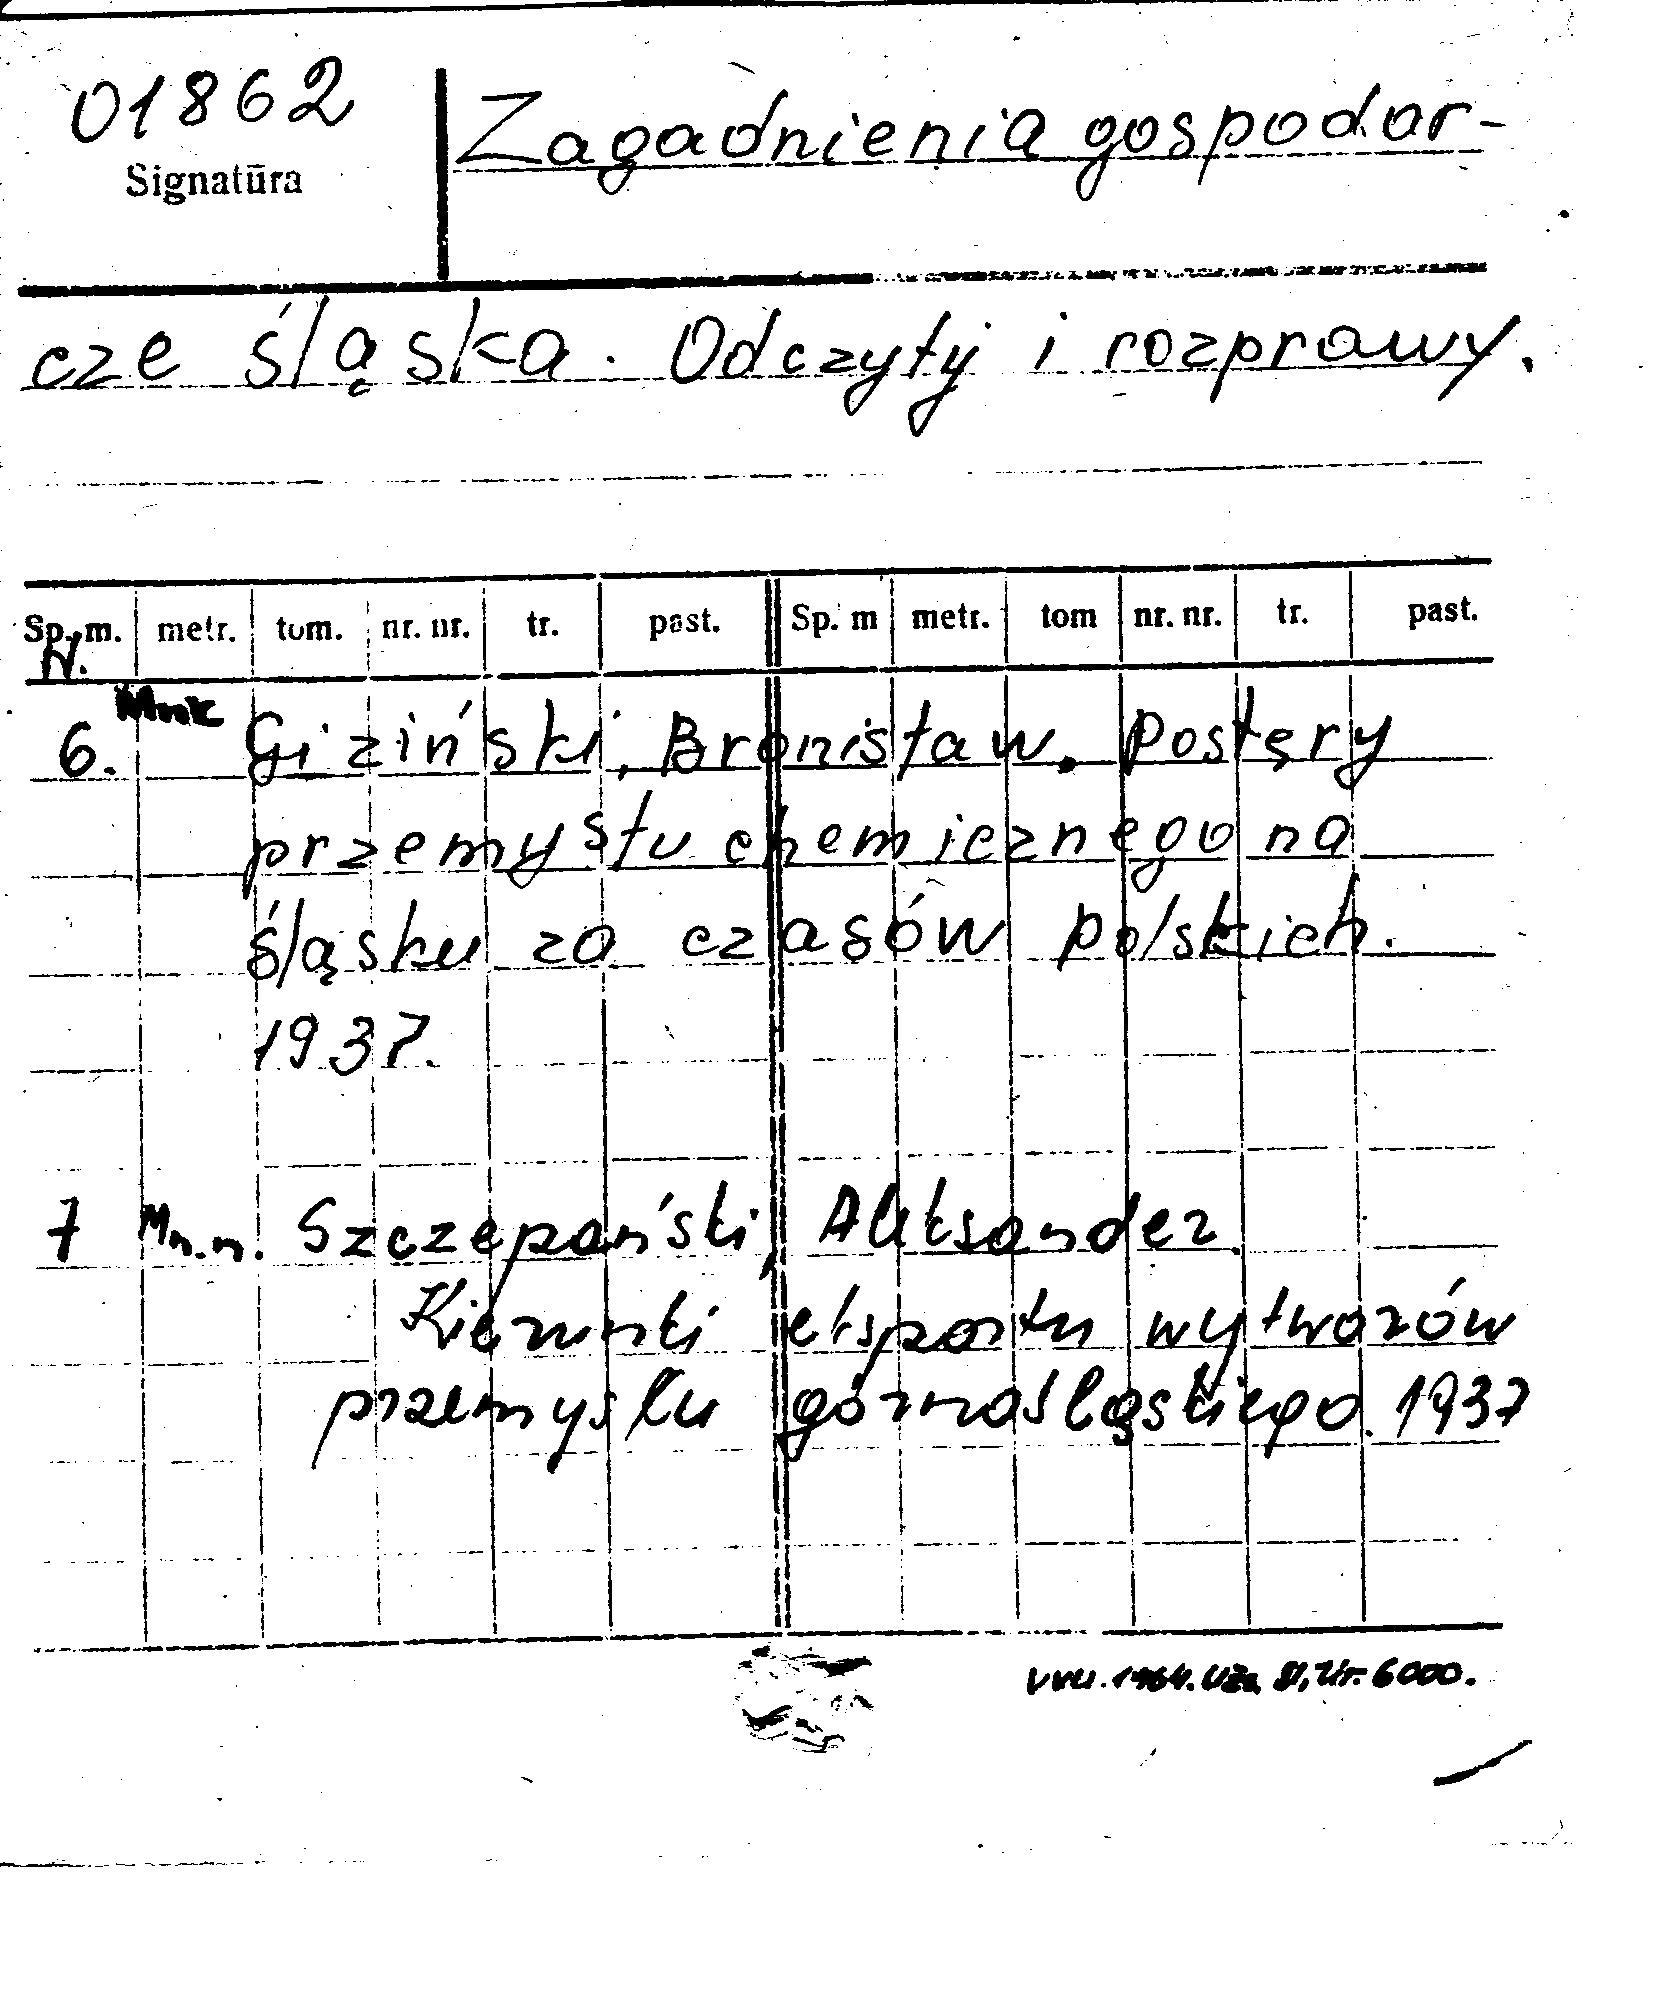 01862
Signatūra
Zagadnienia gospodar-
cze śląska. Odczyty i rozprawy.
Sp. m. metr. tom. nr. nr. tr. past. Sp. m metr. tom nr. nr. tr. past.
N.
6. Mnk Giziński, Bronisław. Postęry
przemysłu chemicznego na
śląsku za czasów polskich.
1937.
7 Mn.n. Szczepański, Aleksander.
Kierunki eksportu wytworów
przemysłu górnośląskiego. 1937
VVU. 1964. Užs. 6000.